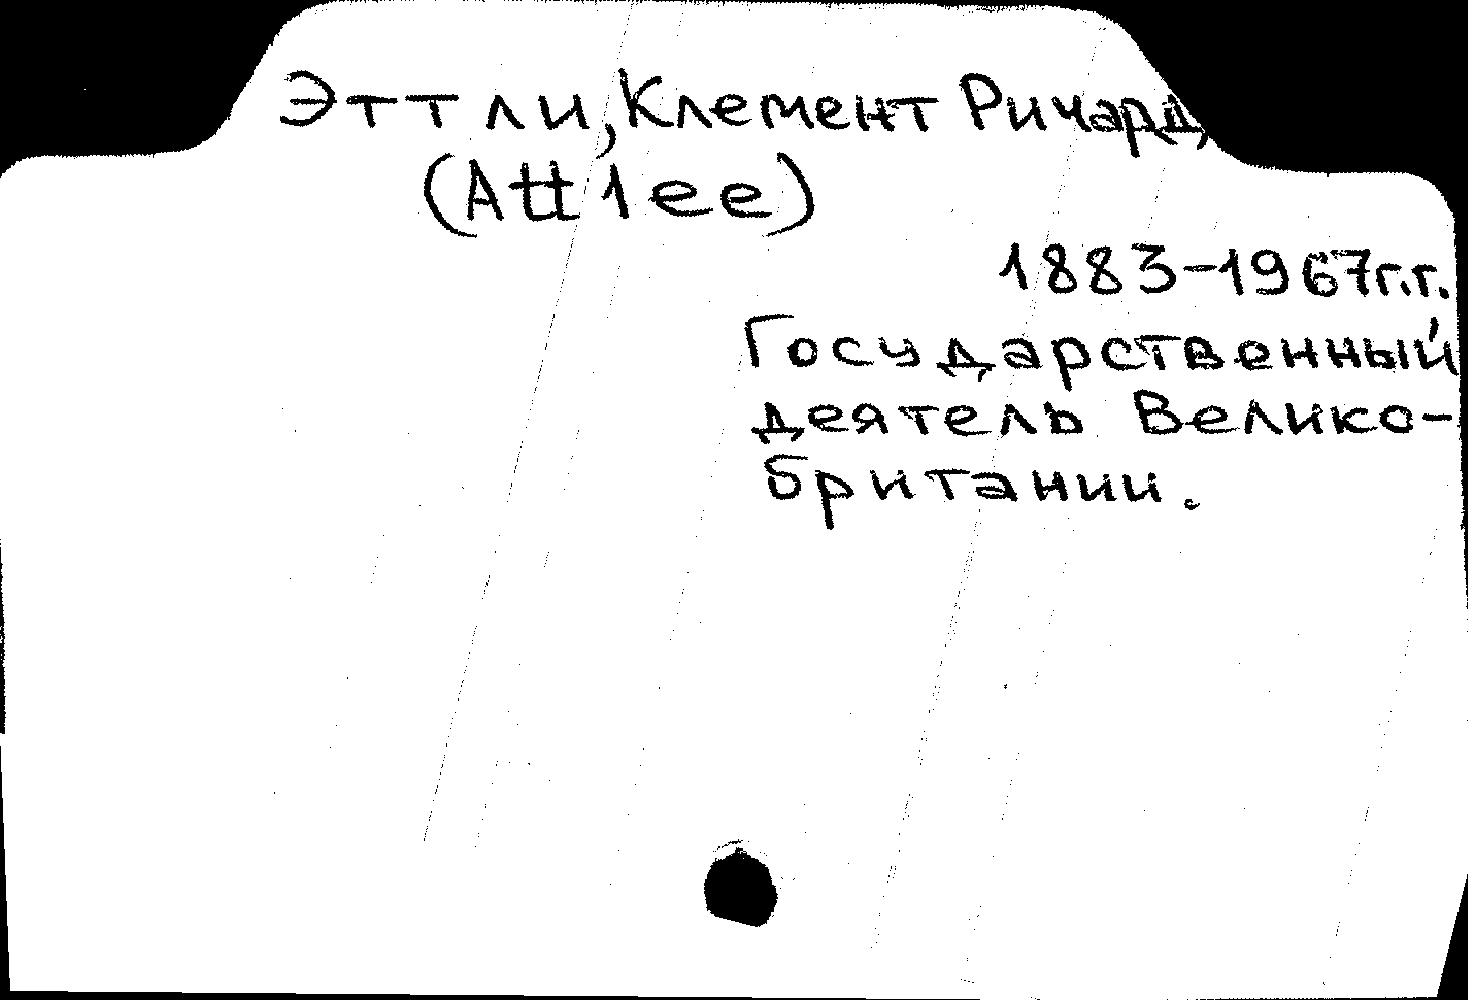 Эттли, Клемент Ричард,
(Attlee)
1883-1967г.г.
Государственный
деятель Велико-
британии.